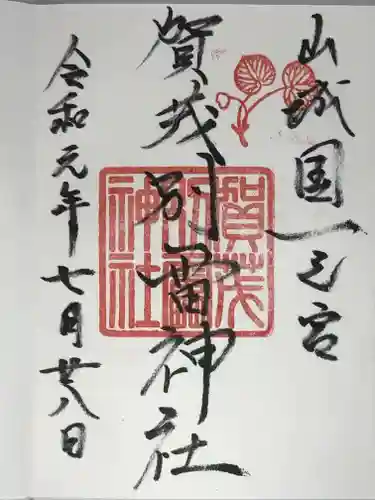 山城国一之宮
賀茂別雷神社
賀茂別雷神社
令和元年七月廿八日